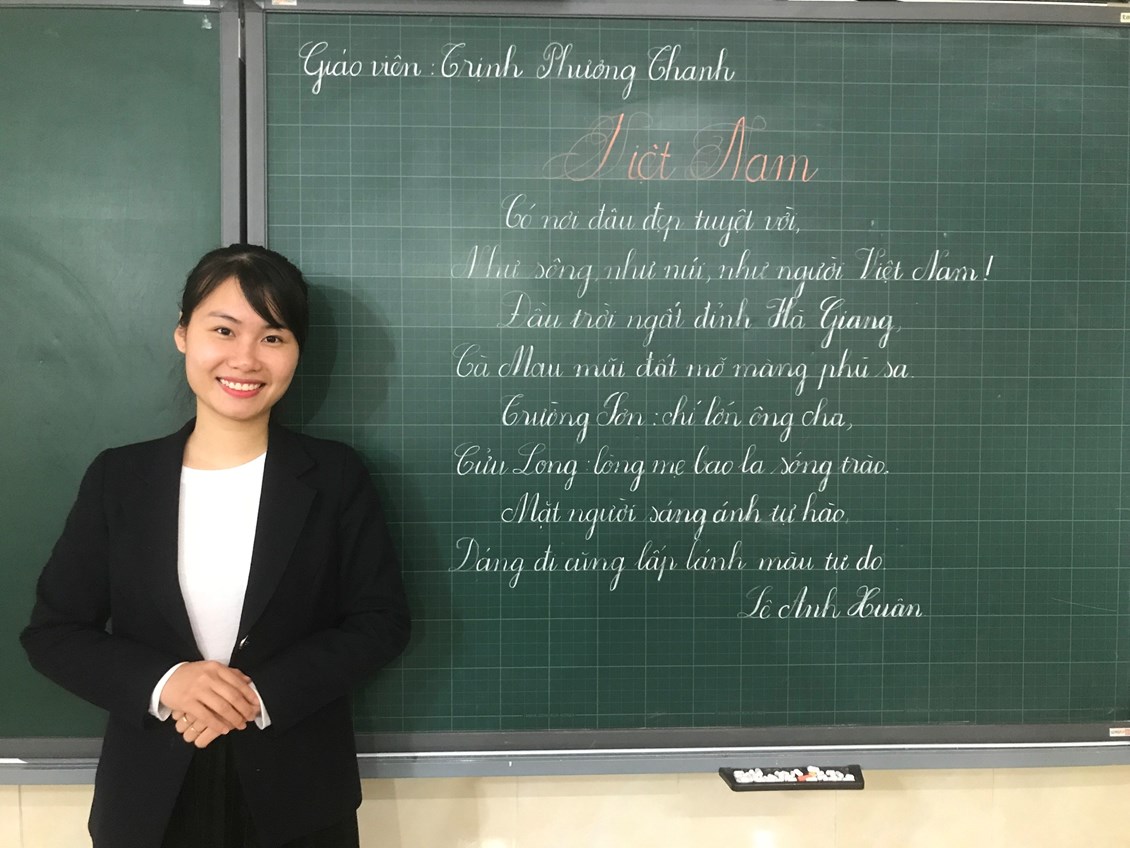 Giáo viên : Trịnh Phương Thanh
Việt Nam
Có nơi đâu đẹp tuyệt vời,
Như sông, như núi, như người Việt Nam!
Đầu trời ngất đỉnh Hà Giang,
Cà Mau mũi đất mở màng phù sa.
Trường Sơn : chí lớn ông cha,
Cửu Long : lòng mẹ bao la sóng trào.
Mặt người sáng ánh tự hào,
Dáng đi cũng lấp lánh màu tự do.
Lê Anh Xuân